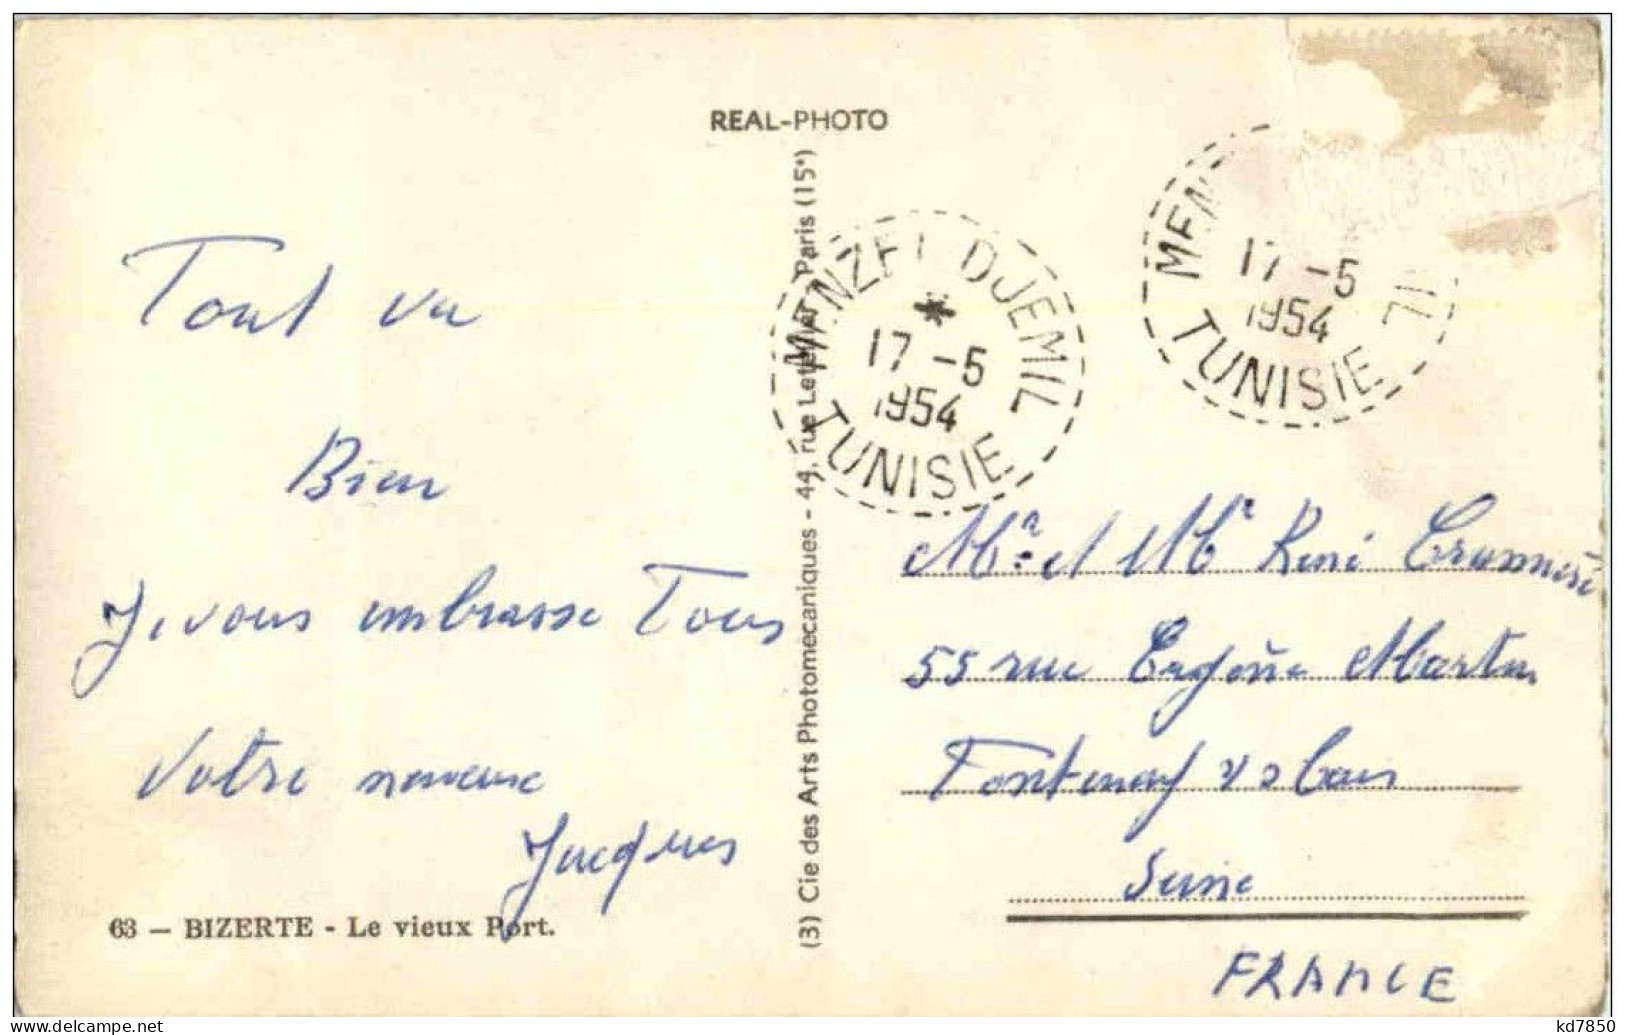 REAL-PHOTO
Tout va
Bien
Je vous embrasse Tous
Votre neveux
Jacques
63 — BIZERTE - Le vieux Port.
(3) Cie des Arts Photomecaniques - 44, rue Letellier, Paris (15e)
MENZEL DJEMIL
*
17 -5
1954
TUNISIE
MEN IL
17 -5
1954
TUNISIE
Mr et Me René
55 rue Martin
Fontenay s/s bois
Seine
FRANCE
delcampe.net
kd7850